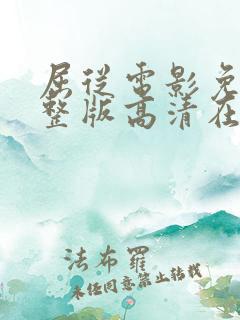 屈从电影免
整版高清在
法布罗
未经同意禁止转载